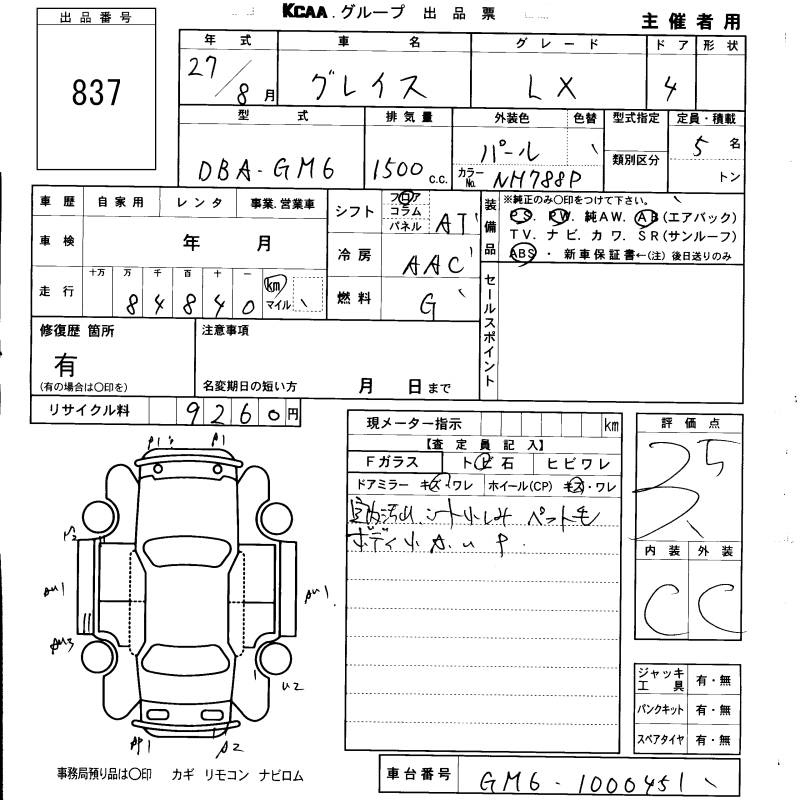 KCAA.グループ 出品票 主催者用
出品番号
837
年式 車名 グレード ドア 形状
27/8月 グレイス LX 4
型式 排気量 外装色 色替 型式指定 定員・積載
DBA-GM6 1500 c.c. パール 5名
カラーNo. NH788P 類別区分 トン
車歴 自家用 レンタ 事業.営業車
シフト フロア コラム パネル AT
装備品 ※純正のみ○印をつけて下さい。
PS. PW. 純AW. AB(エアバック)
TV. ナビ. カワ. SR(サンルーフ)
ABS ・ 新車保証書←(注) 後日送りのみ
車検 年 月
冷房 AAC
走行 十万 万 千 百 十 一
84840 km マイル
燃料 G
セールスポイント
修復歴 箇所 注意事項
有
(有の場合は○印を) 名変期日の短い方 月 日まで
リサイクル料 9260円
現メーター指示 km
評価点
【査定員記入】
Fガラス トビ石 ヒビワレ
ドアミラー キズ・ワレ ホイール(CP) キズ・ワレ
シート小しみ ペット毛
ボディ小 A. u P.
内装 外装
C C
A1
A1
S2
AU1
AU1
AU3
U2
AP1
A2
ジャッキ工具 有・無
パンクキット 有・無
スペアタイヤ 有・無
事務局預り品は○印 カギ リモコン ナビロム
車台番号 GM6-1000451